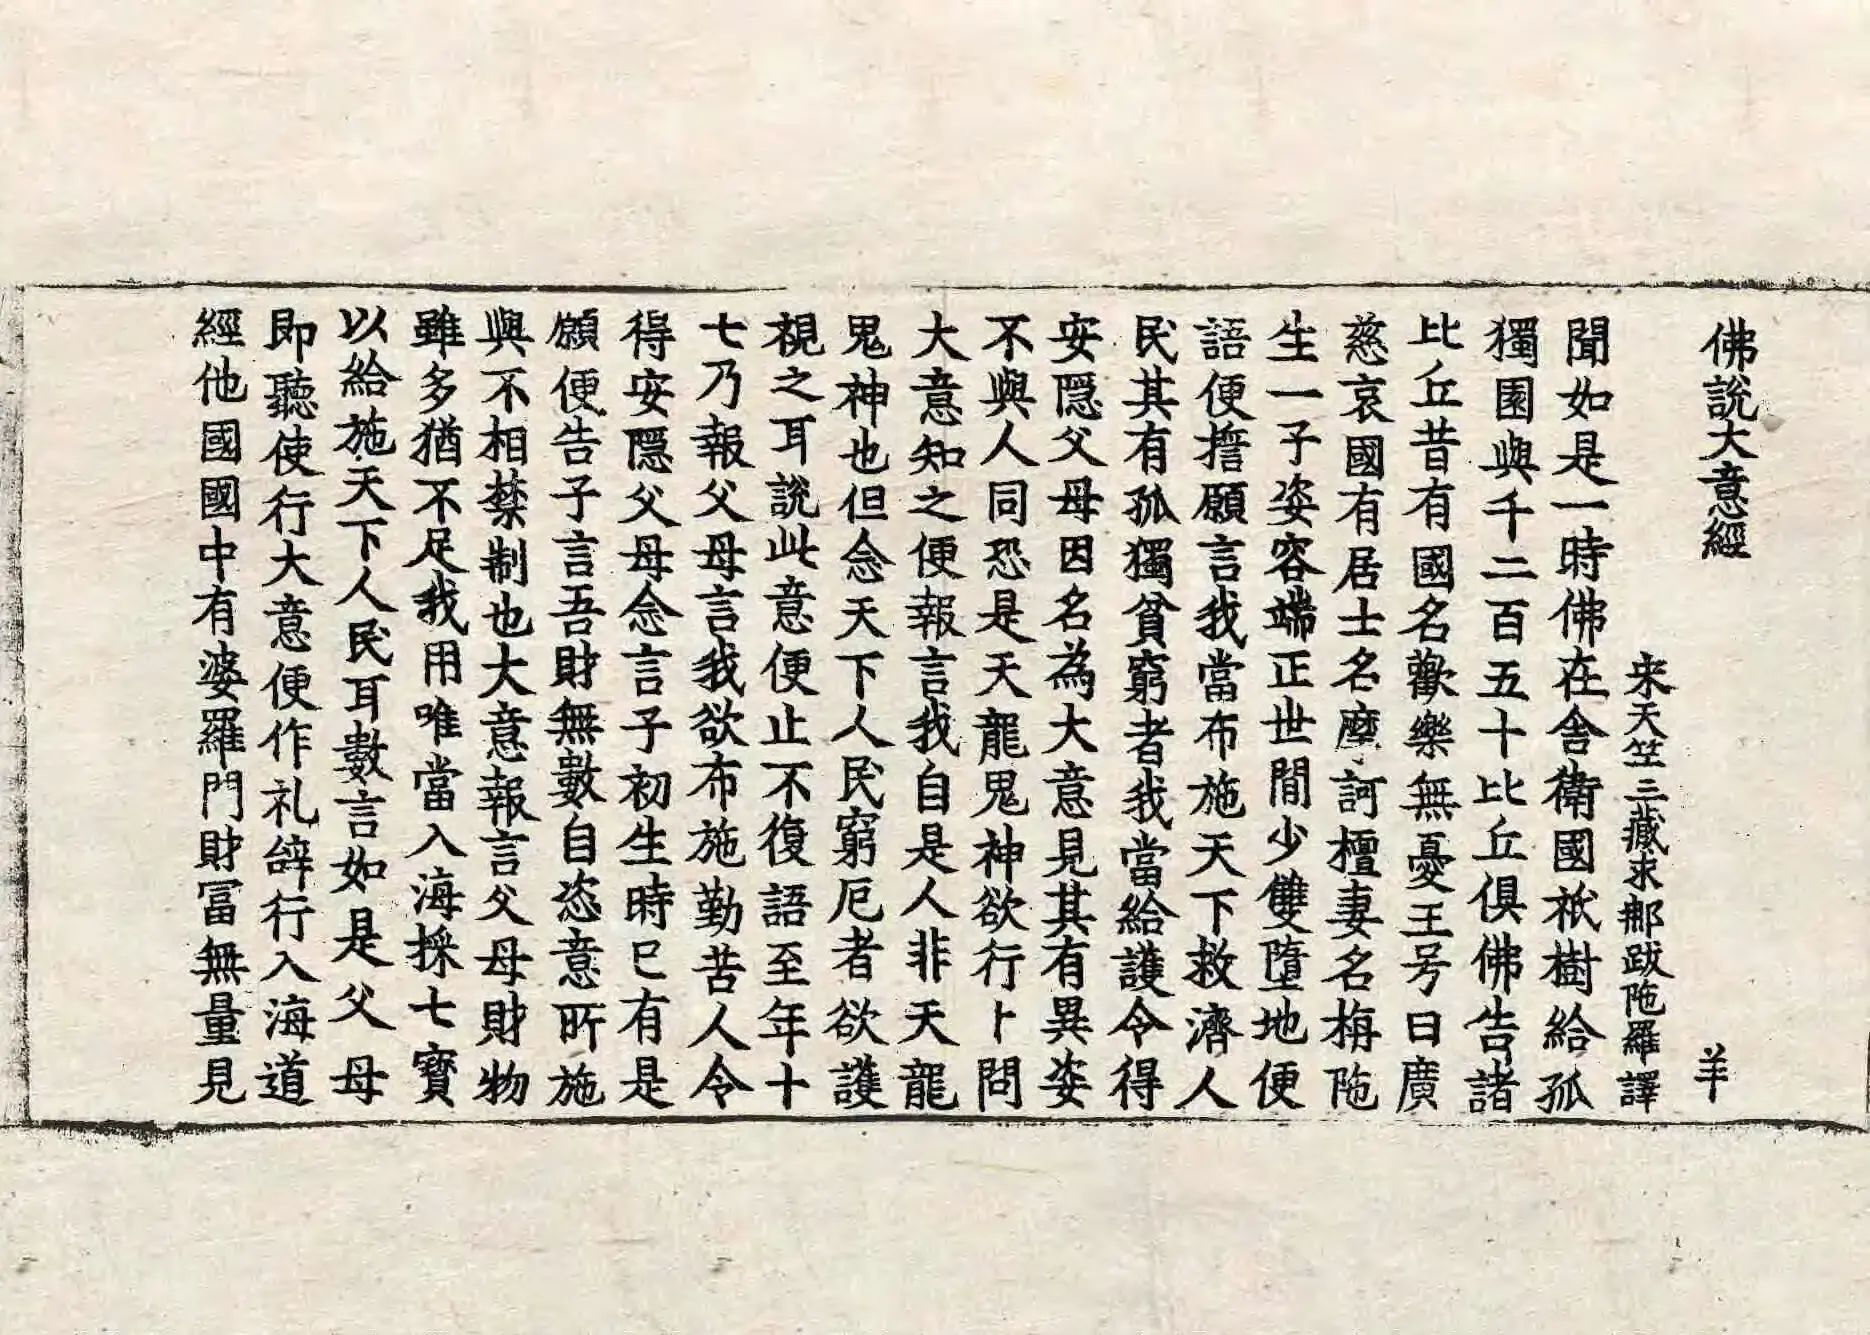 佛說大意經　羊
宋天竺三藏求那跋陁羅譯
聞如是一時佛在舍衛國祇樹給孤
獨園與千二百五十比丘俱佛告諸
比丘昔有國名歡樂無憂王号曰廣
慈哀國有居士名摩訶檀妻名栴陁
生一子姿容端正世間少雙墮地便
語便擔願言我當布施天下救濟人
民其有孤獨貧窮者我當給護令得
安隱父母因名為大意見其有異姿
不與人同恐是天龍鬼神欲行卜問
大意知之便報言我自是人非天龍
鬼神也但念天下人民窮厄者欲護
視之耳說此意便止不復語至年十
七乃報父母言我欲布施勤苦人令
得安隱父母念言子初生時已有是
願便告子言吾財無數自恣意所施
與不相禁制也大意報言父母財物
雖多猶不足我用唯當入海採七寶
以給施天下人民耳數言如是父母
即聽使行大意便作礼辝行入海道
經他國國中有婆羅門財冨無量見